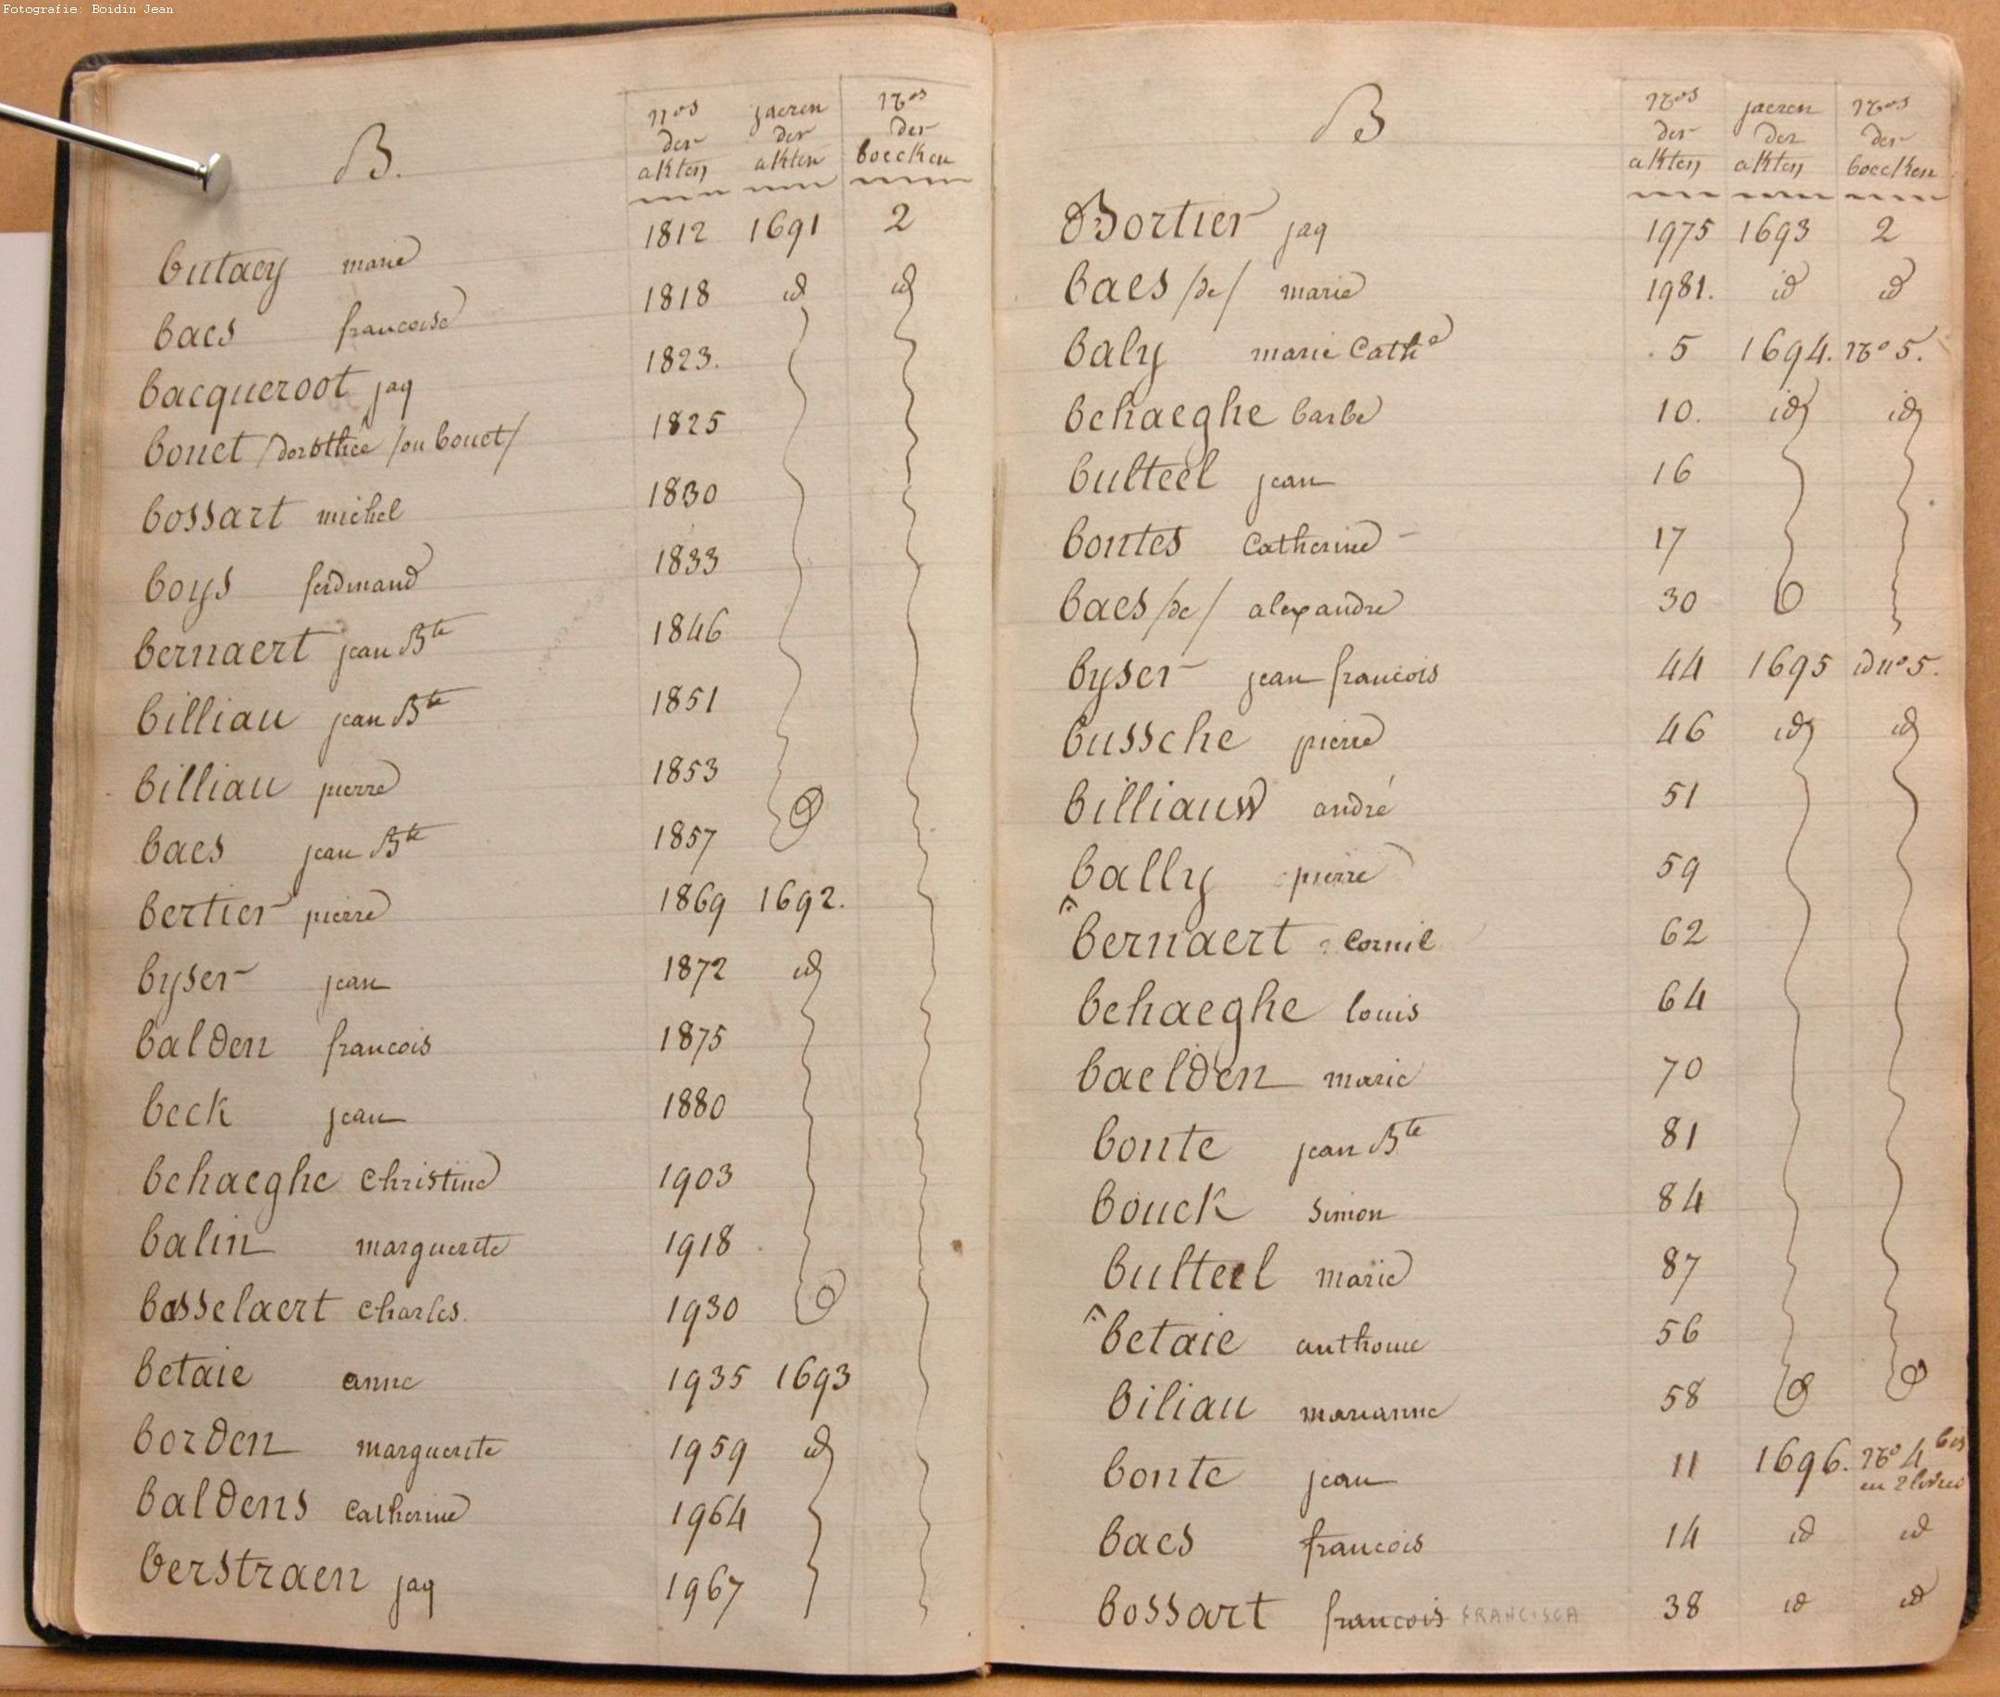 Fotografie: Boidin Jean
B.
nos der akten
jaeren der akten
nos der boecken
butaey marie 1812 1691 2
baes francoise 1818 id id
bacqueroot jaq 1823.
bouet /dorothée /ou bouct/ 1825
bossart michel 1830
boys ferdinand 1833
bernaert jean Bte 1846
billiau jean Bte 1851
billiau pierre 1853
baes jean Bte 1857
bertier pierre 1869 1692.
byser jean 1872 id
balden francois 1875
beck jean 1880
behaeghe christine 1903
balin marguerite 1918
basselaert charles. 1930
betaie anne 1935 1693
borden marguerite 1959 id
baldens catherine 1964
berstraen jaq 1967
B
nos der akten
jaeren der akten
nos der boecken
Bortier jaq 1975 1693 2
baes /de/ marie 1981. id id
baly marie Cathe 5 1694. no 5.
behaeghe barbe 10. id id
bulteel jean 16
bontes catherine 17
baes /de/ alexandre 30
byser jean francois 44 1695 id no 5.
bussche pierre 46 id id
billiauw andré 51
bally pierre 59
bernaert cornil 62
behaeghe louis 64
baelden marie 70
bonte jean Bte 81
bouck simon 84
bulteel marie 87
betaie anthonie 56
biliau marianne 58
bonte jean 11 1696. no 4 bis
en 2 livres
baes francois 14 id id
bossart francois FRANCISCA 38 id id